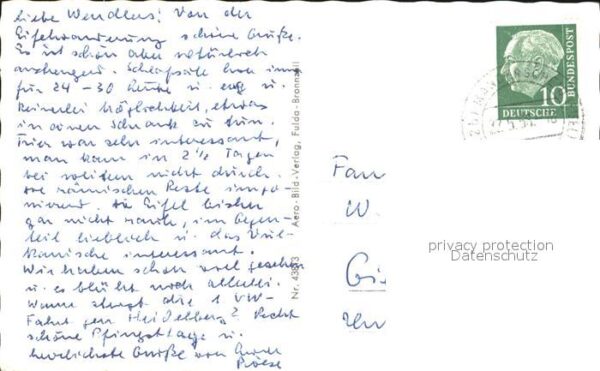 Liebe Wendlers! Von der
Eifelwanderung schöne Grüße.
Es ist schön aber natürlich
anstrengend. Schlafsäle hier immer
für 24 – 30 Leute u. eng u.
keinerlei Möglichkeit, etwas
in einen Schrank zu tun.
Trier war sehr interessant,
man kam in 2 ½ Tagen
bei weitem nicht durch.
Die römischen Reste impo-
nierend. Die Eifel bisher
gar nicht rauh, im Gegen-
teil lieblich u. das Vul-
kanische interessant.
Wir haben schon viel gesehen
u. es blüht noch allerlei.
Wann steigt die 1 VW-
Fahrt gen Heidelberg? Recht
schöne Pfingsttage u.
herzlichste Grüße von
Nr. 43873 Aero-Bild-Verlag, Fulda-Bronnzell
10
DEUTSCHE
BUNDESPOST
Fam
W.
Gie
privacy protection
Datenschutz